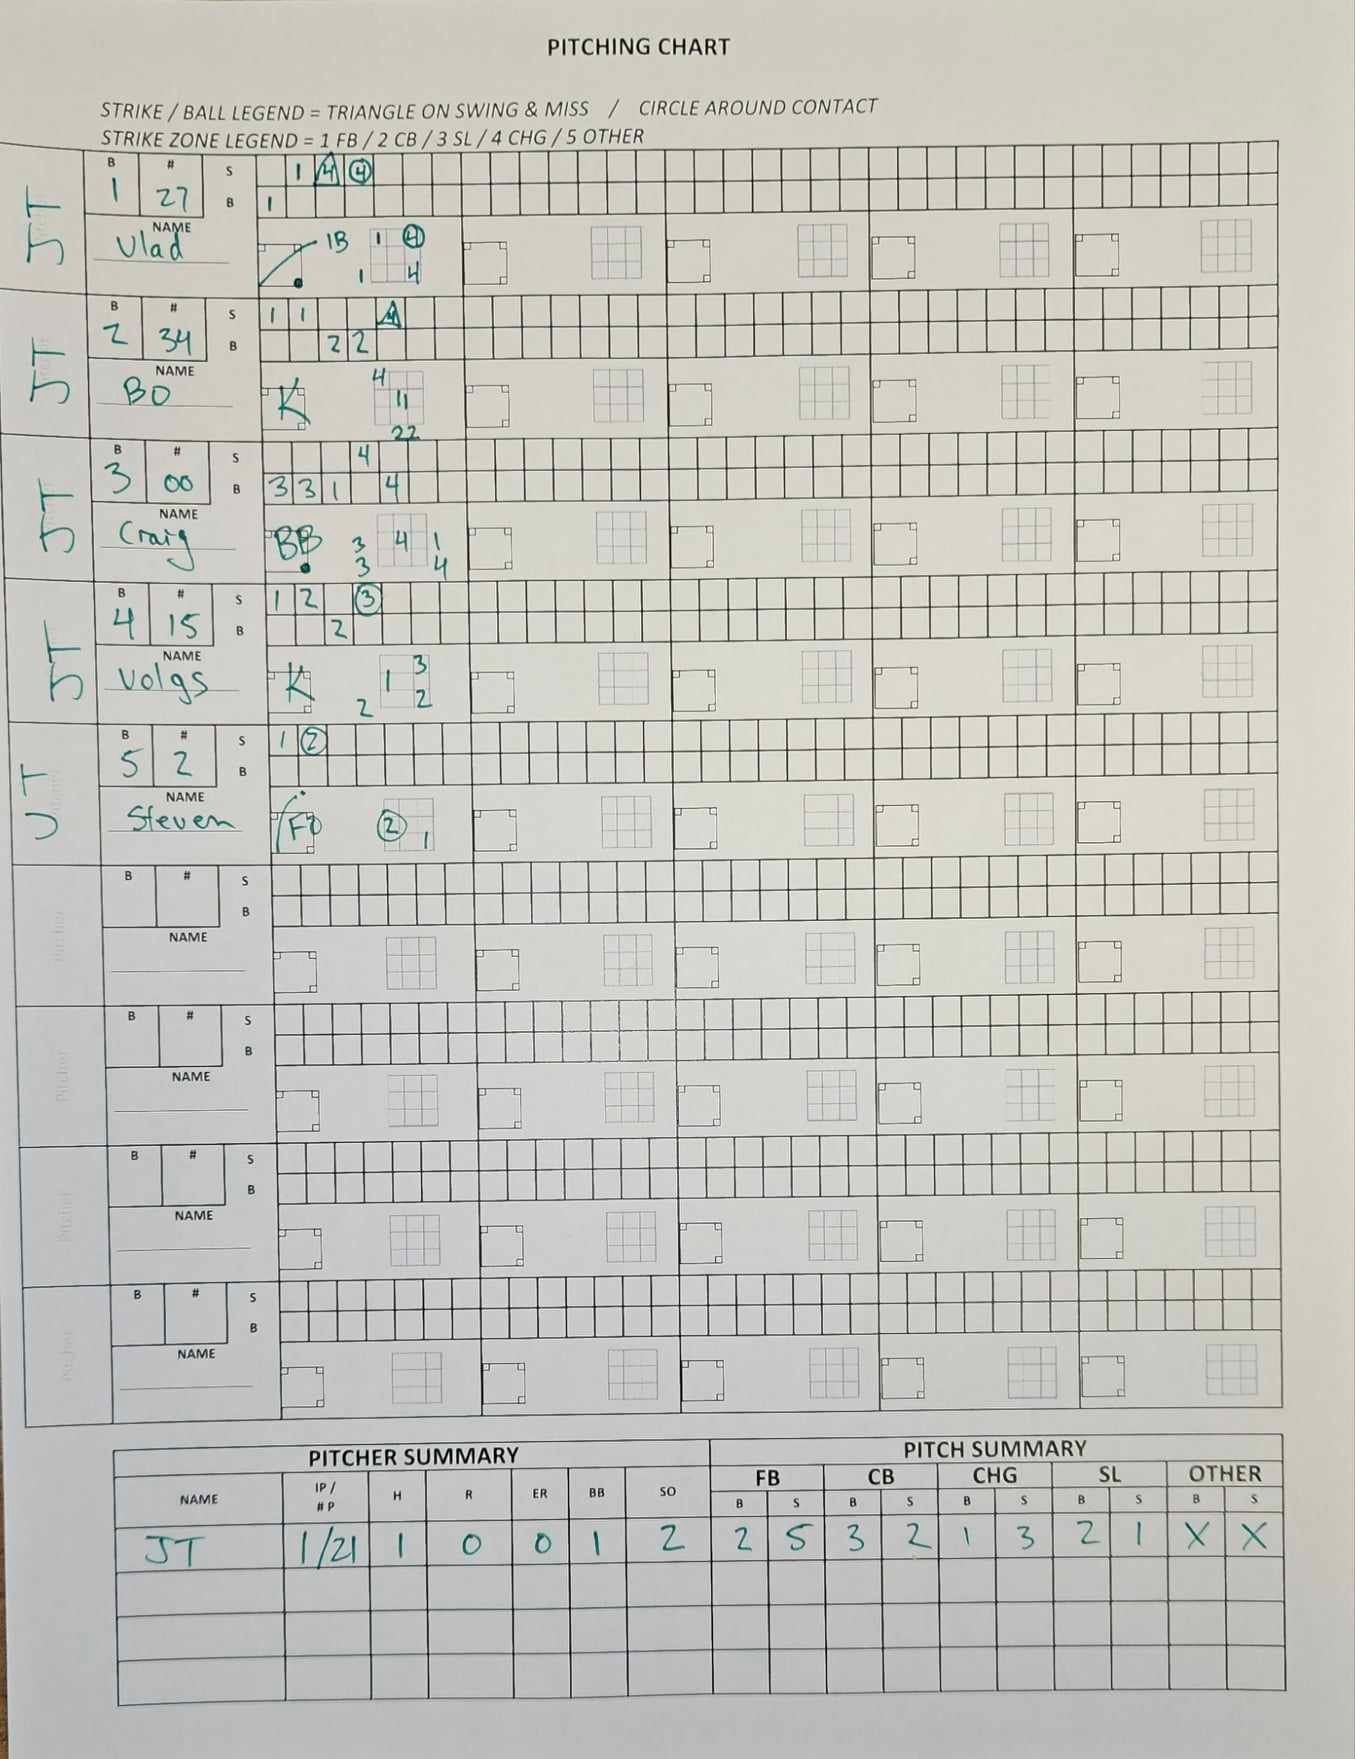 PITCHING CHART
STRIKE / BALL LEGEND = TRIANGLE ON SWING & MISS / CIRCLE AROUND CONTACT
STRIKE ZONE LEGEND = 1 FB / 2 CB / 3 SL / 4 CHG / 5 OTHER
JT
B # S 1 4 4
1 27 B 1
NAME
Vlad 1B 1 4
1 4
JT
B # S 1 1 4
2 34 B 2 2
NAME
BO K 4
11
22
JT
B # S 4
3 00 B 3 3 1 4
NAME
Craig BB 3 4 1
3 4
JT
B # S 1 2 3
4 15 B 2
NAME
Volgs K 1 3
2 2
JT
B # S 1 2
5 2 B
NAME
Steven F8 2 1
B # S
B
NAME
Pitcher
B # S
B
NAME
Pitcher
B # S
B
NAME
Pitcher
B # S
B
NAME
Pitcher
PITCHER SUMMARY PITCH SUMMARY
FB CB CHG SL OTHER
NAME IP / # P H R ER BB SO B S B S B S B S B S
JT 1/21 1 0 0 1 2 2 5 3 2 1 3 2 1 X X